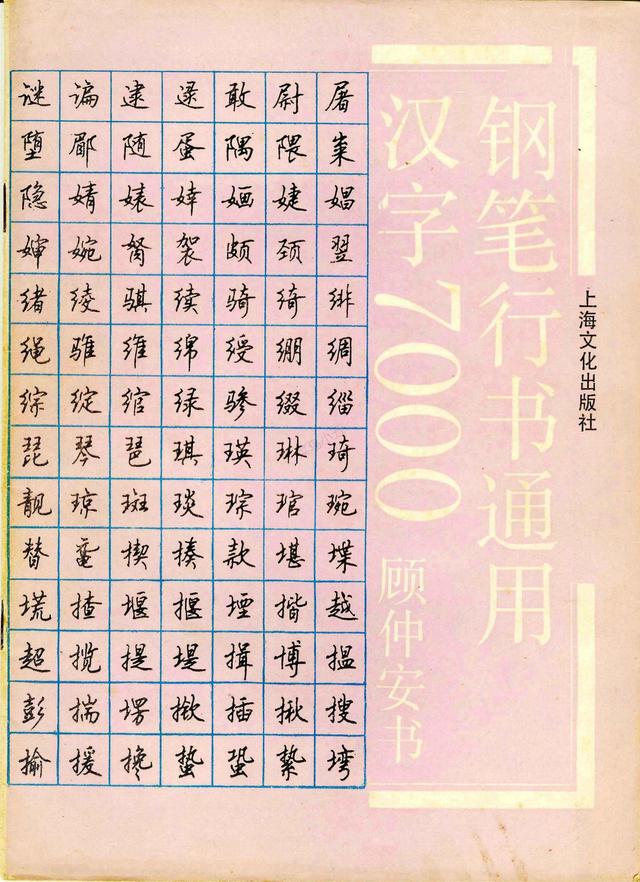 谜谝逮逯敢尉屠
堕郿随蛋隅隈粜
隐婧婊婞婳婕娼
婶婉胬袈颇颈翌
绪绫骐续骑绮绯
绳骓维绵绶绷绸
综绽绾绿骖缀缁
琵琴琶琪瑛琳琦
靓琼斑琰琮琯琬
替鼋揳揍款堪堞
塃揸堰揠堙揩越
超揽提堤揖博揾
彭揣塄揿插揪搜
揄援搀蛰蛩絷塆
钢笔行书通用
汉字7000
顾仲安书
上海文化出版社